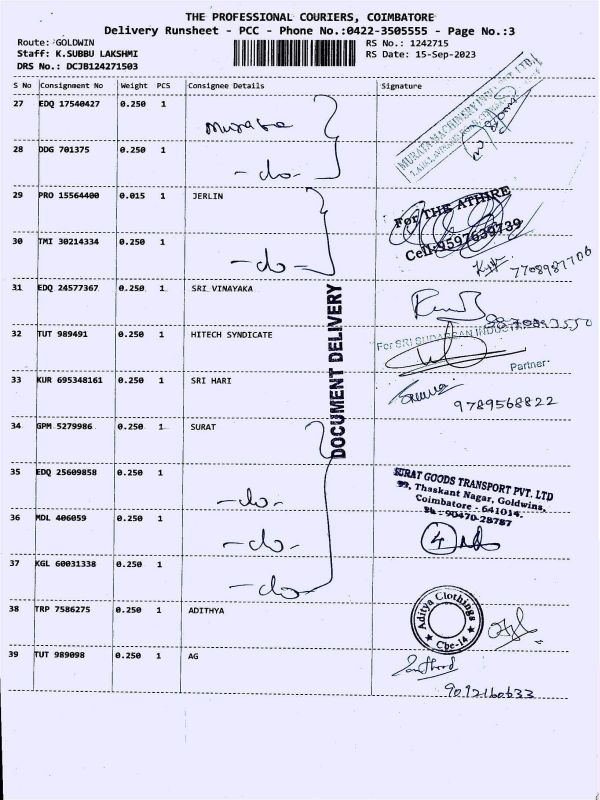 THE PROFESSIONAL COURIERS, COIMBATORE
Delivery Runsheet - PCC - Phone No.:0422-3505555 - Page No.:3
Route: GOLDWIN
RS No.: 1242715
Staff: K.SUBBU LAKSHMI
RS Date: 15-Sep-2023
DRS No.: DCJB124271503
S No Consignment No Weight PCS Consignee Details Signature
27 EDQ 17540427 0.250 1
Murata
28 DDG 701375 0.250 1
-do-
MURATA MACHINERY INDIA PVT LTD.
29 PRO 15564400 0.015 1 JERLIN
For THE ATHIRE
Cell:9597639739
30 TMI 30214334 0.250 1
-do-
7708981706
31 EDQ 24577367 0.250 1 SRI VINAYAKA
DOCUMENT DELIVERY
32 TUT 989491 0.250 1 HITECH SYNDICATE
For SRI SUDARSAN
Partner.
33 KUR 695348161 0.250 1 SRI HARI
9789568822
34 GPM 5279986 0.250 1 SURAT
35 EDQ 25609858 0.250 1
-do-
SURAT GOODS TRANSPORT PVT. LTD
99, Thaskant Nagar, Goldwins,
Coimbatore - 641014.
Ph : 90470-28787
36 MDL 406059 0.250 1
-do-
4
37 KGL 60031338 0.250 1
-do-
38 TRP 7586275 0.250 1 ADITHYA
Aditya Clothings
Cbe-14
39 TUT 989098 0.250 1 AG
9092160633